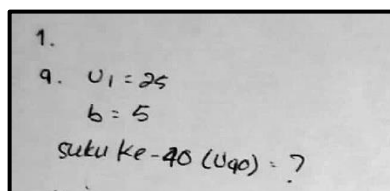 1.
a. U1 = 25
b = 5
suku ke-40 (U40) = ?